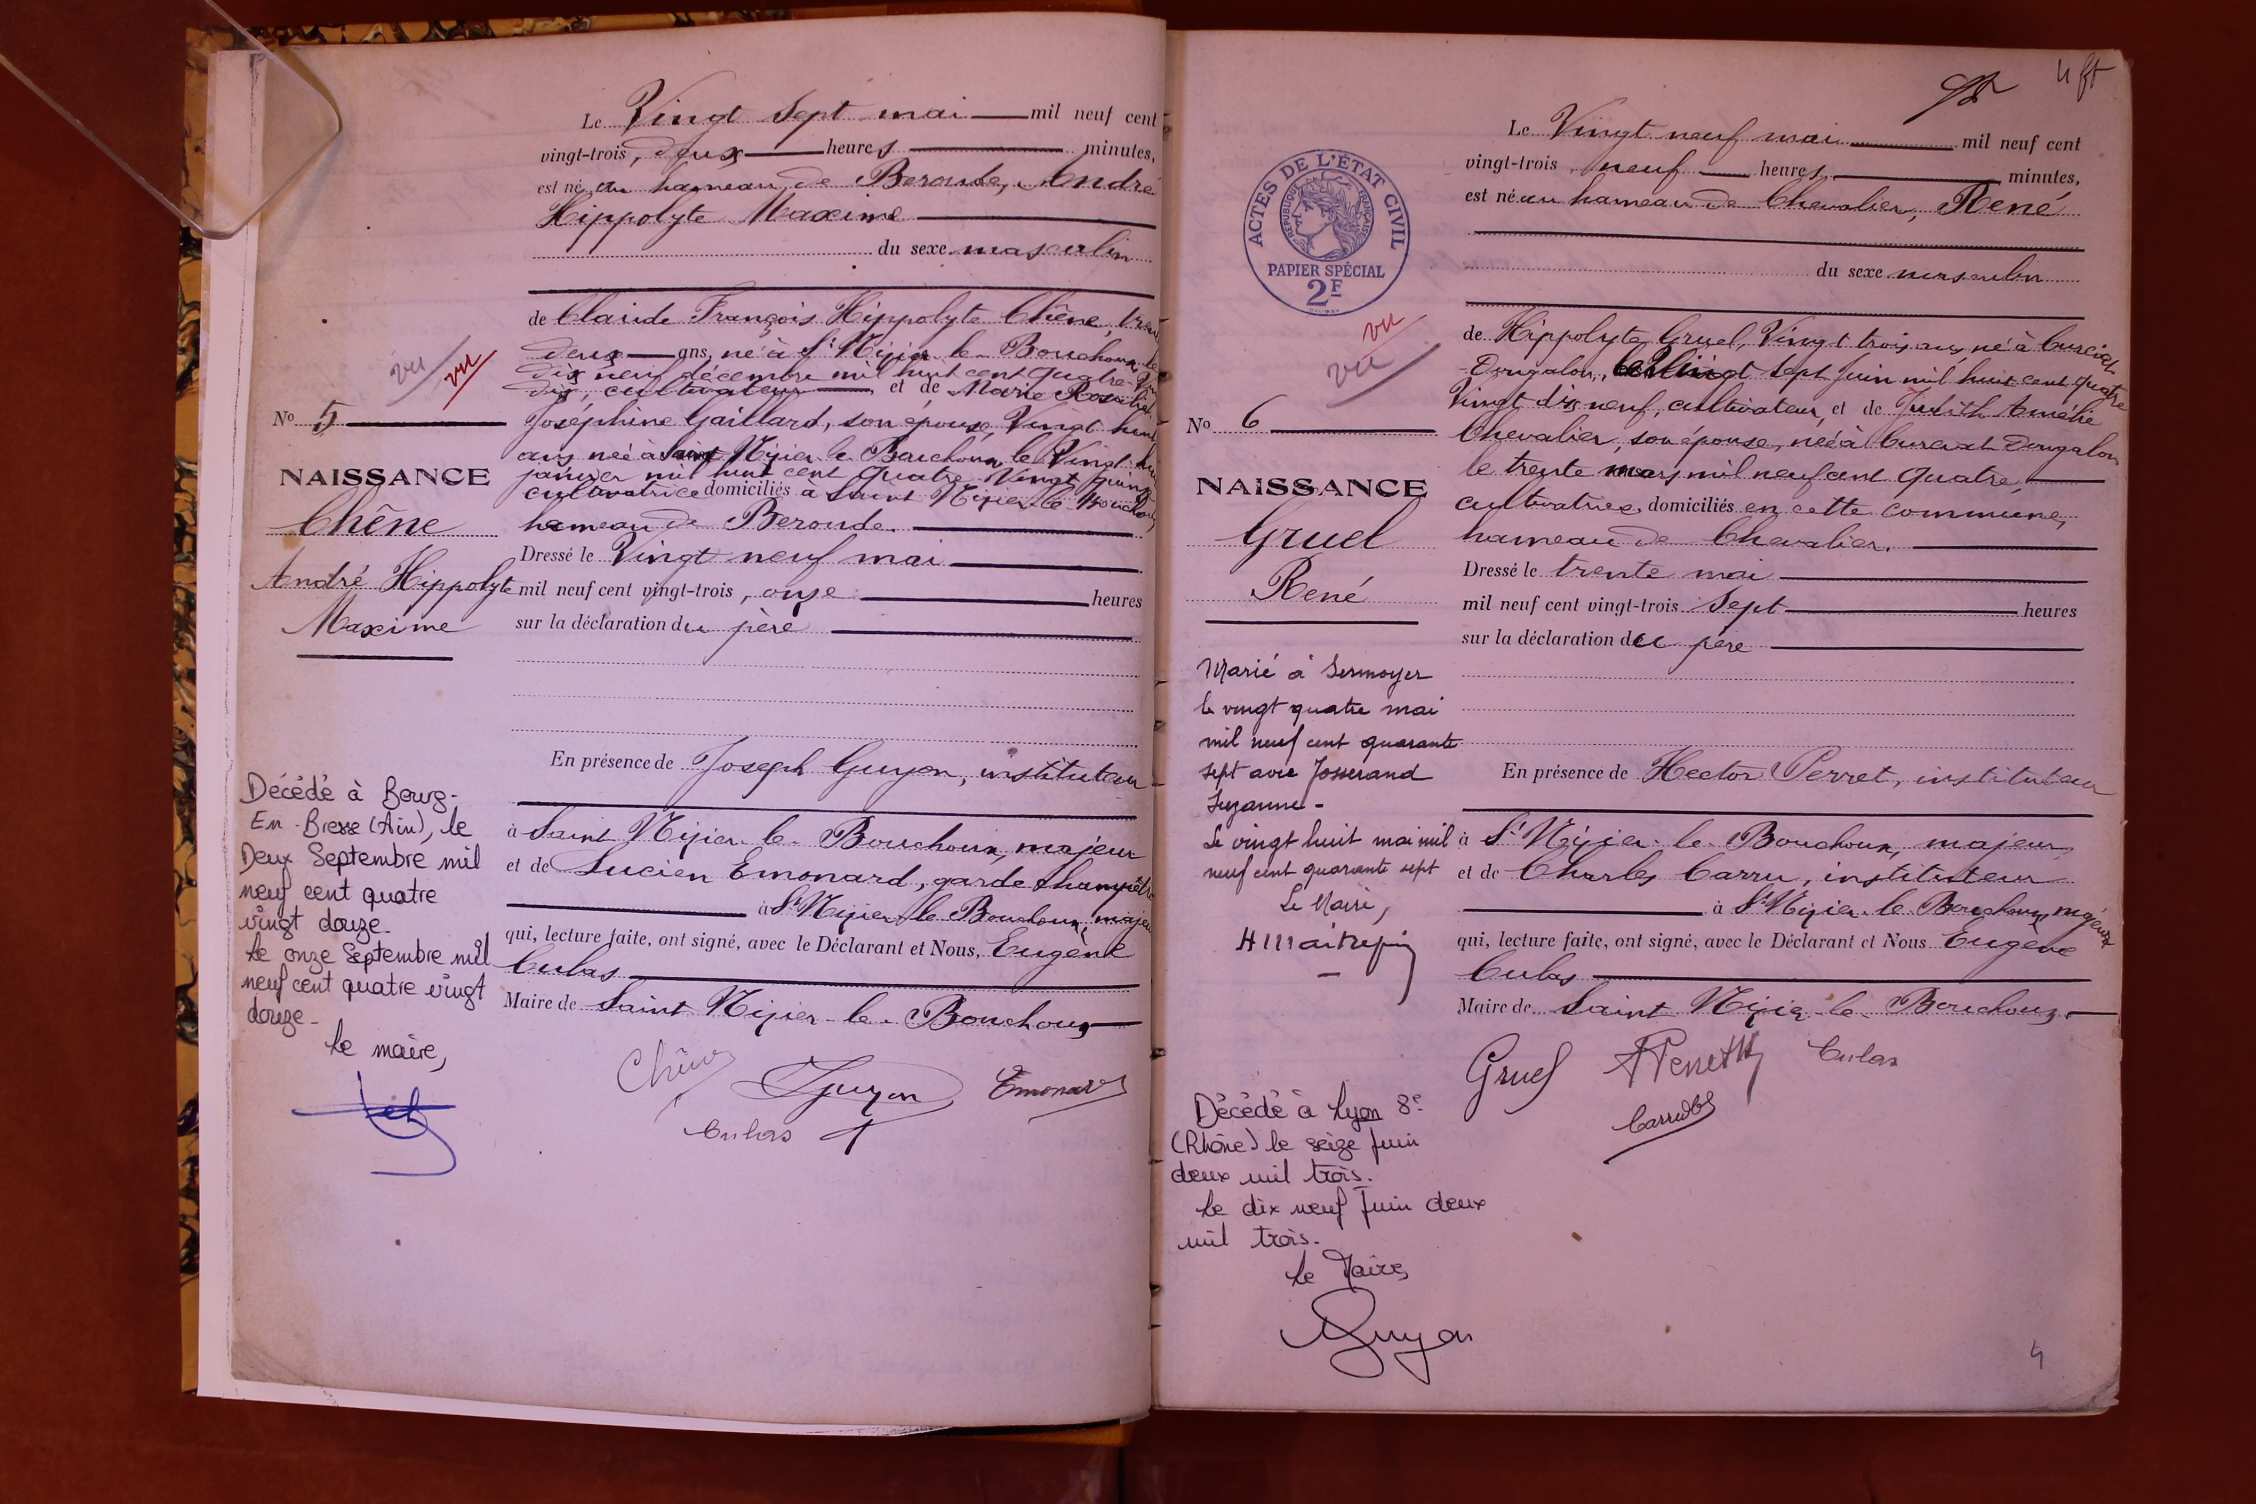 Le Vingt sept mai mil neuf cent
vingt-trois, deux heures minutes,
est né au hameau de Beroude, André
Hippolyte Maxime
du sexe masculin
de Claude François Hippolyte Chêne, trente
deux ans, né à St Nizier le Bouchoux le
dix neuf décembre mil huit cent quatre-vingt
dix, cultivateur et de Marie Rosalie
Joséphine Gaillard, son épouse, Vingt huit
ans née à Saint Nizier le Bouchoux le Vingt huit
janvier mil huit cent quatre Vingt quinze
cultivatrice domiciliés à Saint Nizier le Bouchoux
hameau de Beroude.
Dressé le Vingt neuf mai
mil neuf cent vingt-trois, onze heures
sur la déclaration du père
En présence de Joseph Guyon, instituteur
à Saint Nizier le Bouchoux, majeur
et de Lucien Emonard, garde champêtre
à St Nizier le Bouchoux, majeur
qui, lecture faite, ont signé, avec le Déclarant et Nous, Eugène
Cubas
Maire de Saint Nizier le Bouchoux
Chêne
Guyon
Emonard
Cubas
vu
vu
No 5
NAISSANCE
Chêne
André Hippolyte
Maxime
Décédé à Bourg-
En-Bresse (Ain), le
Deux Septembre mil
neuf cent quatre
vingt douze.
Le onze Septembre mil
neuf cent quatre vingt
douze-
Le maire,
4
Le Vingt neuf mai mil neuf cent
vingt-trois, neuf heures minutes,
est né au hameau de Chevalier, René
du sexe masculin
de Hippolyte Gruel, Vingt trois ans né à Curciat
Dongalon, le Vingt sept juin mil huit cent quatre
Vingt dix neuf, cultivateur, et de Judith Amélie
Chevalier, son épouse, née à Curciat Dongalon
le trente mars mil neuf cent quatre,
cultivatrice, domiciliés en cette commune,
hameau de Chevalier.
Dressé le trente mai
mil neuf cent vingt-trois sept heures
sur la déclaration du père
En présence de Hector Perret, instituteur
à St Nizier le Bouchoux, majeur,
et de Charles Carru, instituteur
à St Nizier le Bouchoux majeur
qui, lecture faite, ont signé, avec le Déclarant et Nous Eugène
Cubas
Maire de Saint Nizier le Bouchoux
Gruel
Cubas
ACTES DE L'ÉTAT CIVIL
RÉPUBLIQUE FRANÇAISE
PAPIER SPÉCIAL
2F
vu
vu
No 6
NAISSANCE
Gruel
René
Marié à Sermoyer
le vingt quatre mai
mil neuf cent quarante
sept avec Josserand
Suzanne-
Le vingt huit mai mil
neuf cent quarante sept
Le Maire,
Décédé à Lyon 8e
(Rhône) le seize Juin
deux mil trois.
Le dix neuf Juin deux
mil trois.
Le Maire,
Guyon
4